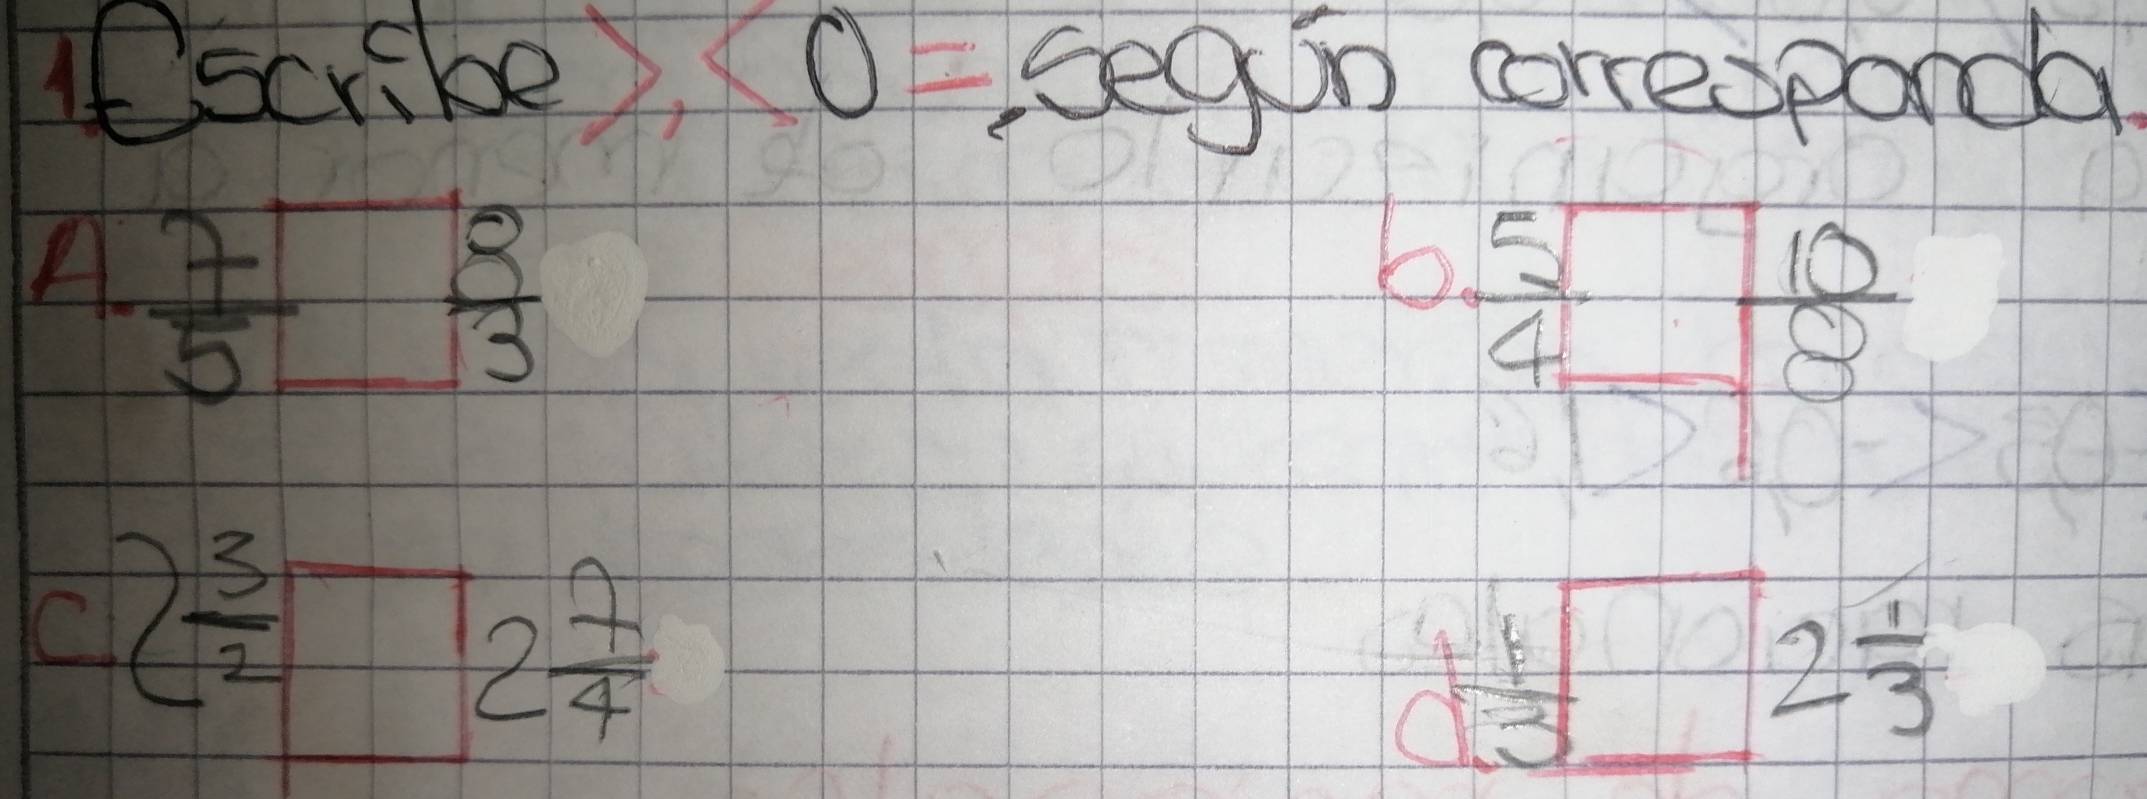 1. Escribe >, < o =, según corresponda.
A. 7/5 □ 8/3
b. 5/4 □ 10/8
C 2 3/2 □ 2 7/4
d. 1/3 □ 2 1/3